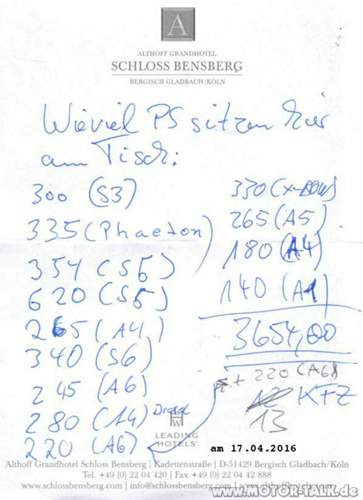 A
ALTHOFF GRANDHOTEL
SCHLOSS BENSBERG
BERGISCH GLADBACH/KÖLN
Wieviel PS sitzen hier
am Tisch:
300 (S3)
335 (Phaeton)
354 (S5)
620 (S6)
265 (A4)
340 (S6)
245 (A6)
280 (A4) Diesel
220 (A6)
330 (X-BOW)
265 (A5)
180 (A4)
140 (A1)
3654,00
+ 220 (A6)
12 KFZ
13
LEADING
HOTELS
am 17.04.2016
Althoff Grandhotel Schloss Bensberg | Kadettenstraße | D-51429 Bergisch Gladbach
Tel. +49 (0) 22 04 420 | Fax +49 (0) 22 04 42 888
www.schlossbensberg.com | info@schlossbensberg.com
www.MOTOR-TALK.de